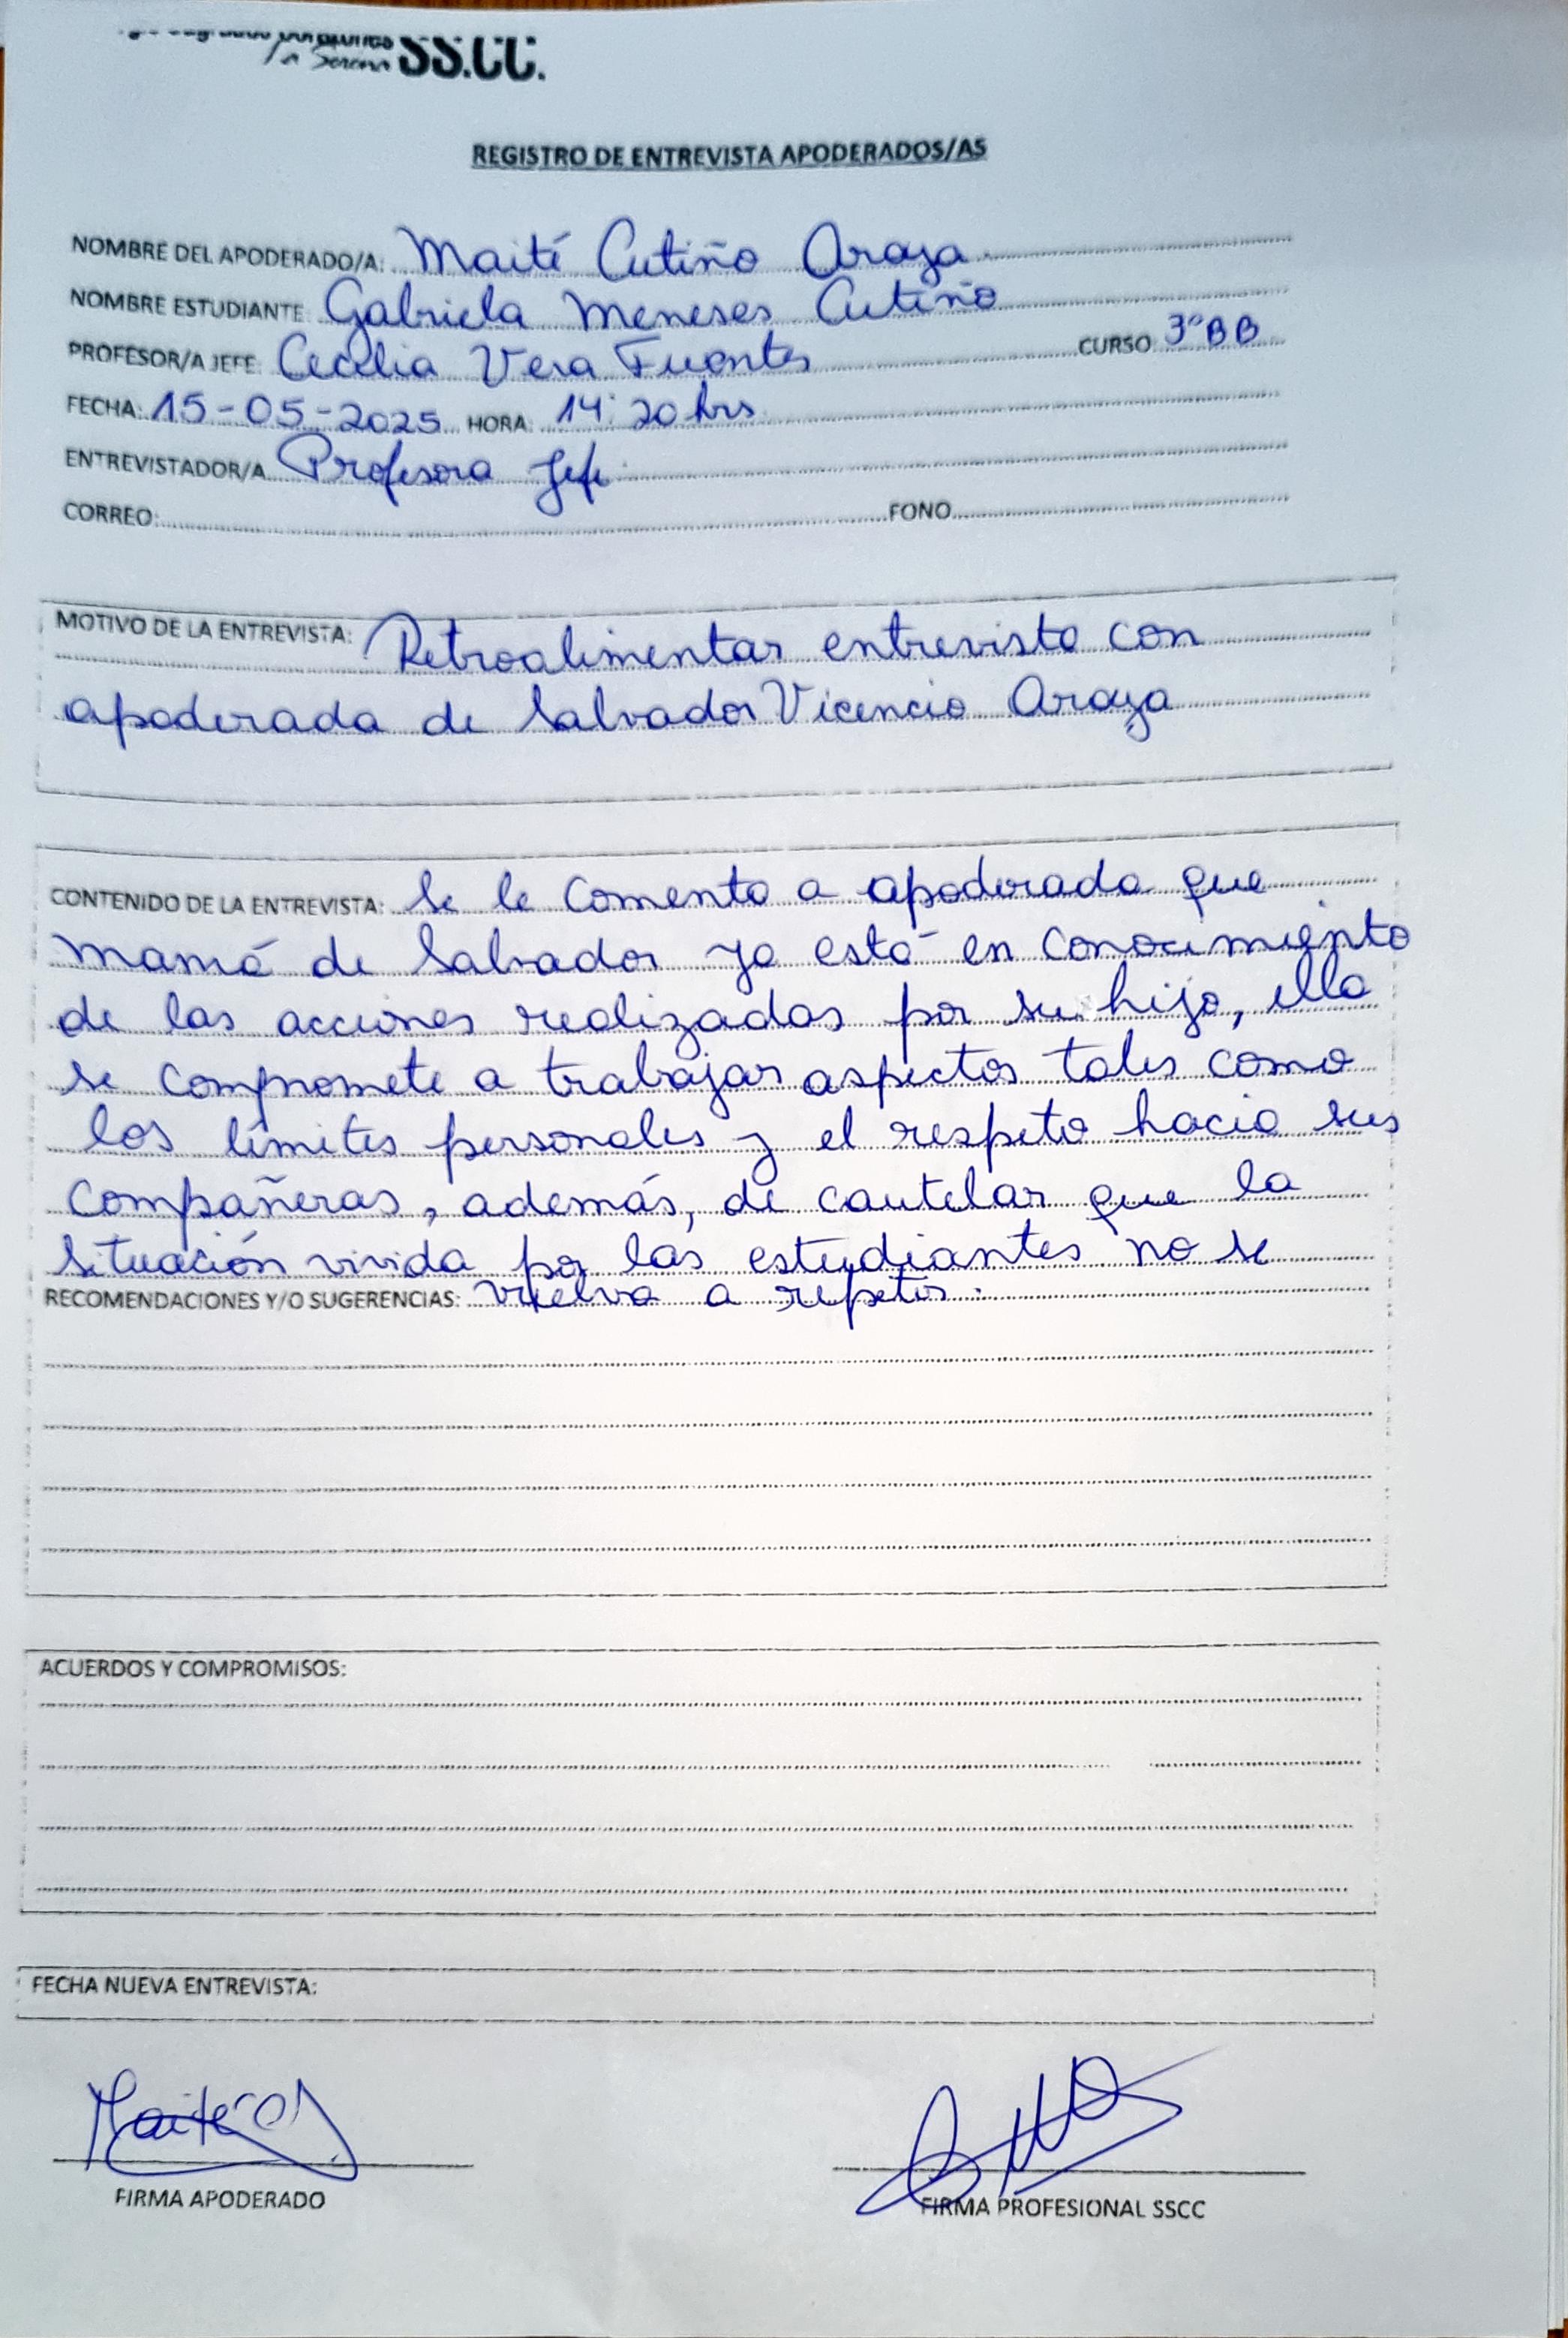 Corazones
La Serena SS.CC.
REGISTRO DE ENTREVISTA APODERADOS/AS
NOMBRE DEL APODERADO/A: Maité Cutiño Araya
NOMBRE ESTUDIANTE Gabriela Meneses Cutiño
PROFESOR/A JEFE: Cecilia Vera Fuentes CURSO 3° BB
FECHA: 15-05-2025 HORA: 14:20 hrs
ENTREVISTADOR/A Profesora Jefe
CORREO: FONO
MOTIVO DE LA ENTREVISTA: Retroalimentar entrevista con
apoderada de Salvador Vicencio Araya
CONTENIDO DE LA ENTREVISTA: Se le comenta a apoderada que
mamá de Salvador ya está en conocimiento
de las acciones realizadas por su hijo, ella
se compromete a trabajar aspectos tales como
los límites personales y el respeto hacia sus
compañeras, además, de cautelar que la
situación vivida por las estudiantes no se
RECOMENDACIONES Y/O SUGERENCIAS: vuelva a repetir.
ACUERDOS Y COMPROMISOS:
FECHA NUEVA ENTREVISTA:
FIRMA APODERADO FIRMA PROFESIONAL SSCC